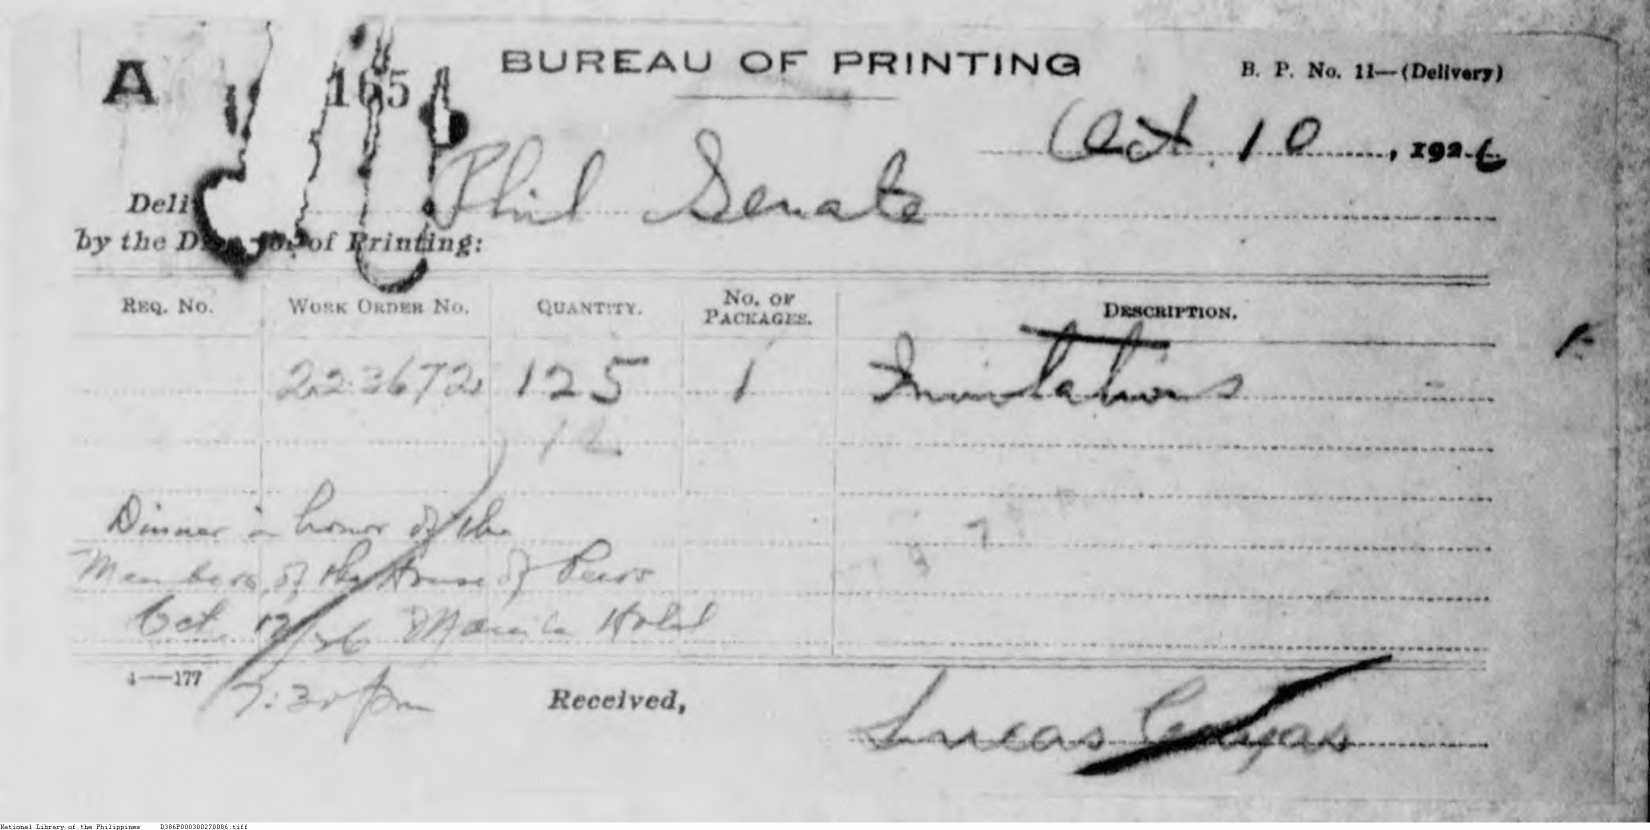 A 165 BUREAU OF PRINTING B. P. No. 11—(Delivery)
Oct. 10, 1926
Deli Phil Senate
by the D of Printing:
REQ. NO. WORK ORDER NO. QUANTITY. NO. OF PACKAGES. DESCRIPTION.
223672 125 1 Invitations
12
Dinner in honor of the
Members of the House of Peers
Oct. 12/26 Manila Hotel
4—177
7:30 pm Received,
Lucas
National Library of the Philippines D386P000300270086.tiff